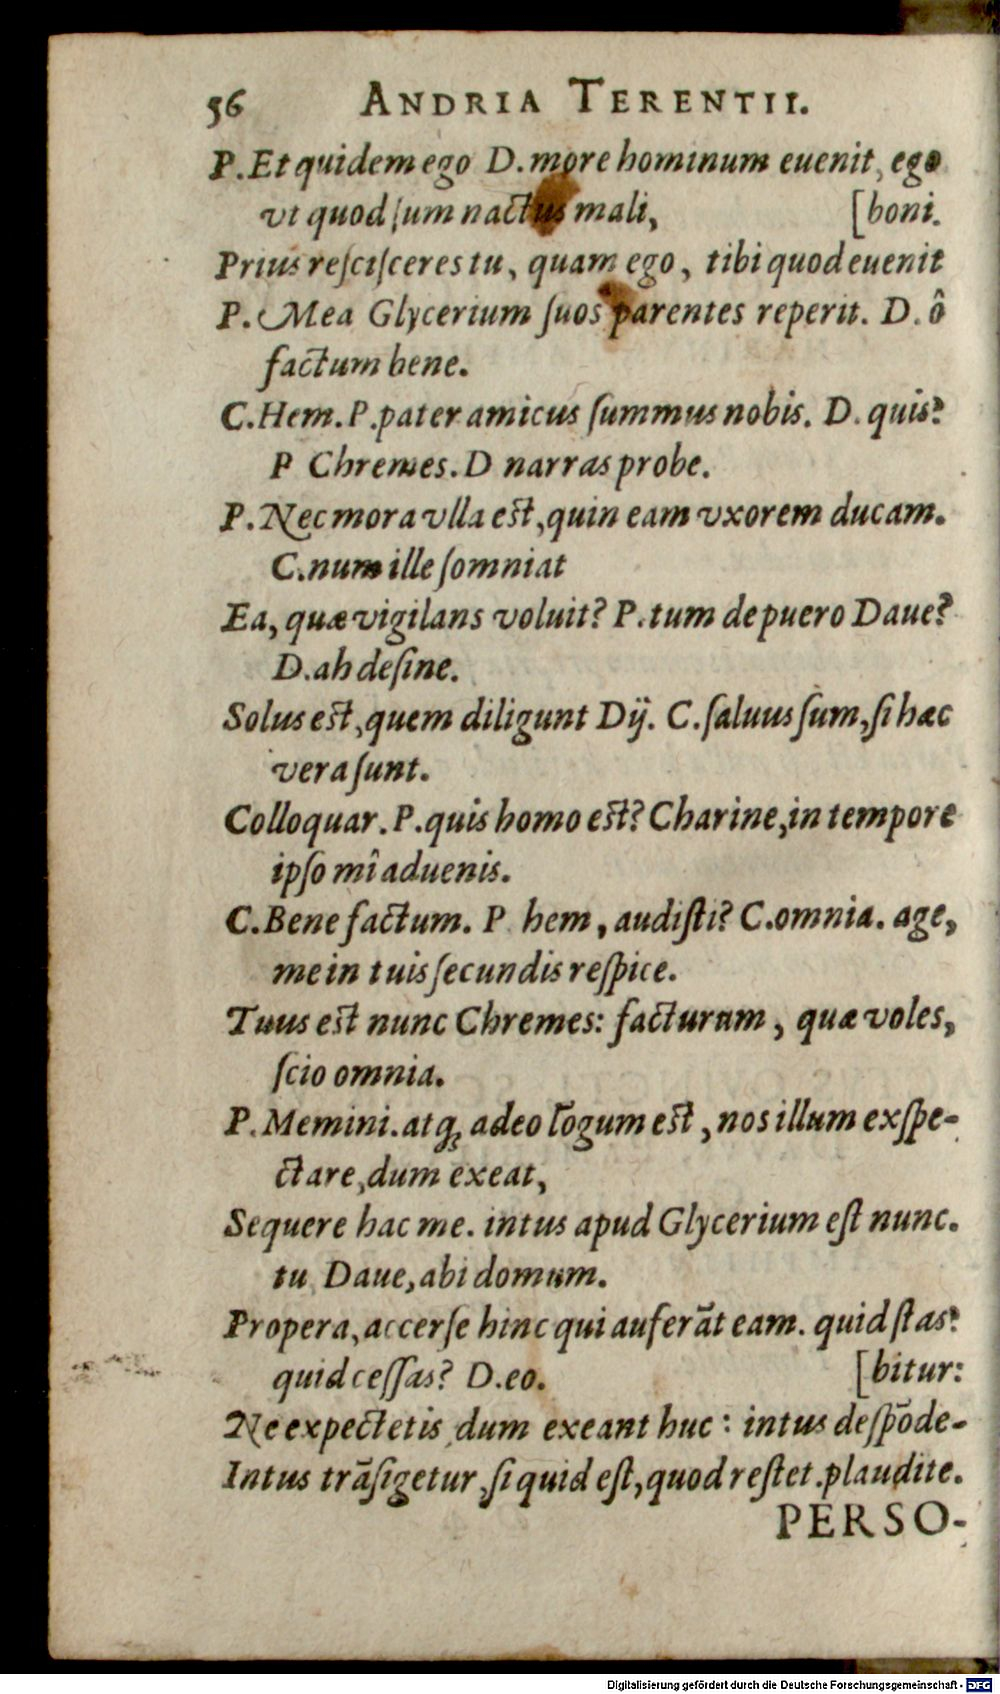 56 ANDRIA TERENTII.
P. Et quidem ego D. more hominum euenit, ego
vt quod ſum nactus mali, [boni.
Prius reſciſceres tu, quam ego, tibi quod euenit
P. Mea Glycerium ſuos parentes reperit. D. ô
factum bene.
C. Hem. P. pater amicus ſummus nobis. D. quis?
P Chremes. D narras probe.
P. Nec mora vlla est, quin eam vxorem ducam.
C. num ille ſomniat
Ea, quæ vigilans voluit? P. tum de puero Daue?
D. ah deſine.
Solus est, quem diligunt Dij. C. ſaluus ſum, ſi hæc
vera ſunt.
Colloquar. P. quis homo est? Charine, in tempore
ipſo mî aduenis.
C. Bene factum. P hem, audiſti? C. omnia. age,
me in tuis ſecundis reſpice.
Tuus est nunc Chremes: facturum, quæ voles,
ſcio omnia.
P. Memini. atq; adeo lõgum est, nos illum exſpe-
ctare, dum exeat,
Sequere hac me. intus apud Glycerium eſt nunc.
tu Daue, abi domum.
Propera, accerſe hinc qui auferãt eam. quid ſtas?
quid ceſſas? D. eo. [bitur:
Ne expectetis dum exeant huc: intus deſpõde-
Intus trãſigetur, ſi quid eſt, quod reſtet. plaudite.
PERSO-
Digitalisierung gefördert durch die Deutsche Forschungsgemeinschaft - DFG